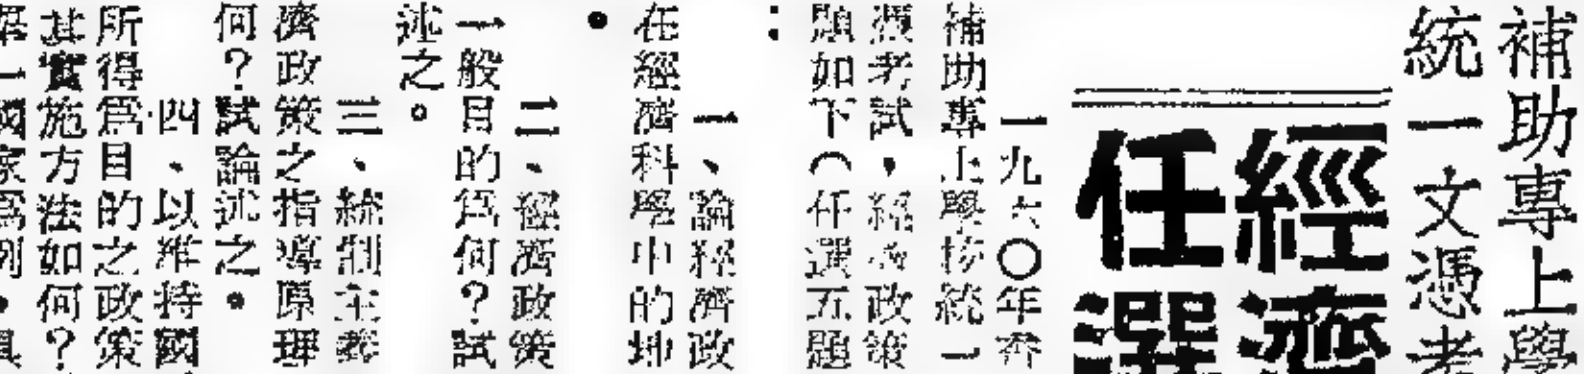 補助專上學
統一文憑考
經濟
任選
一九六〇年香
補助專上學校統一
憑考試，經濟政策
題如下（任選五題
：
一、論經濟政
在經濟科學中的地
。
二、經濟政策
一般目的爲何？試
述之。
三、統制主義
濟政策之指導原理
何？試論述之。
四、以維持國
所得爲目的之政策
其實施方法如何？
一國家爲例，具